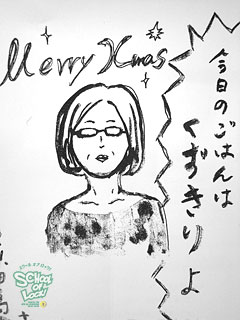 Merry Xmas
今日のごはんは
くずきりよ
SCHOOL
OF
LOCK!